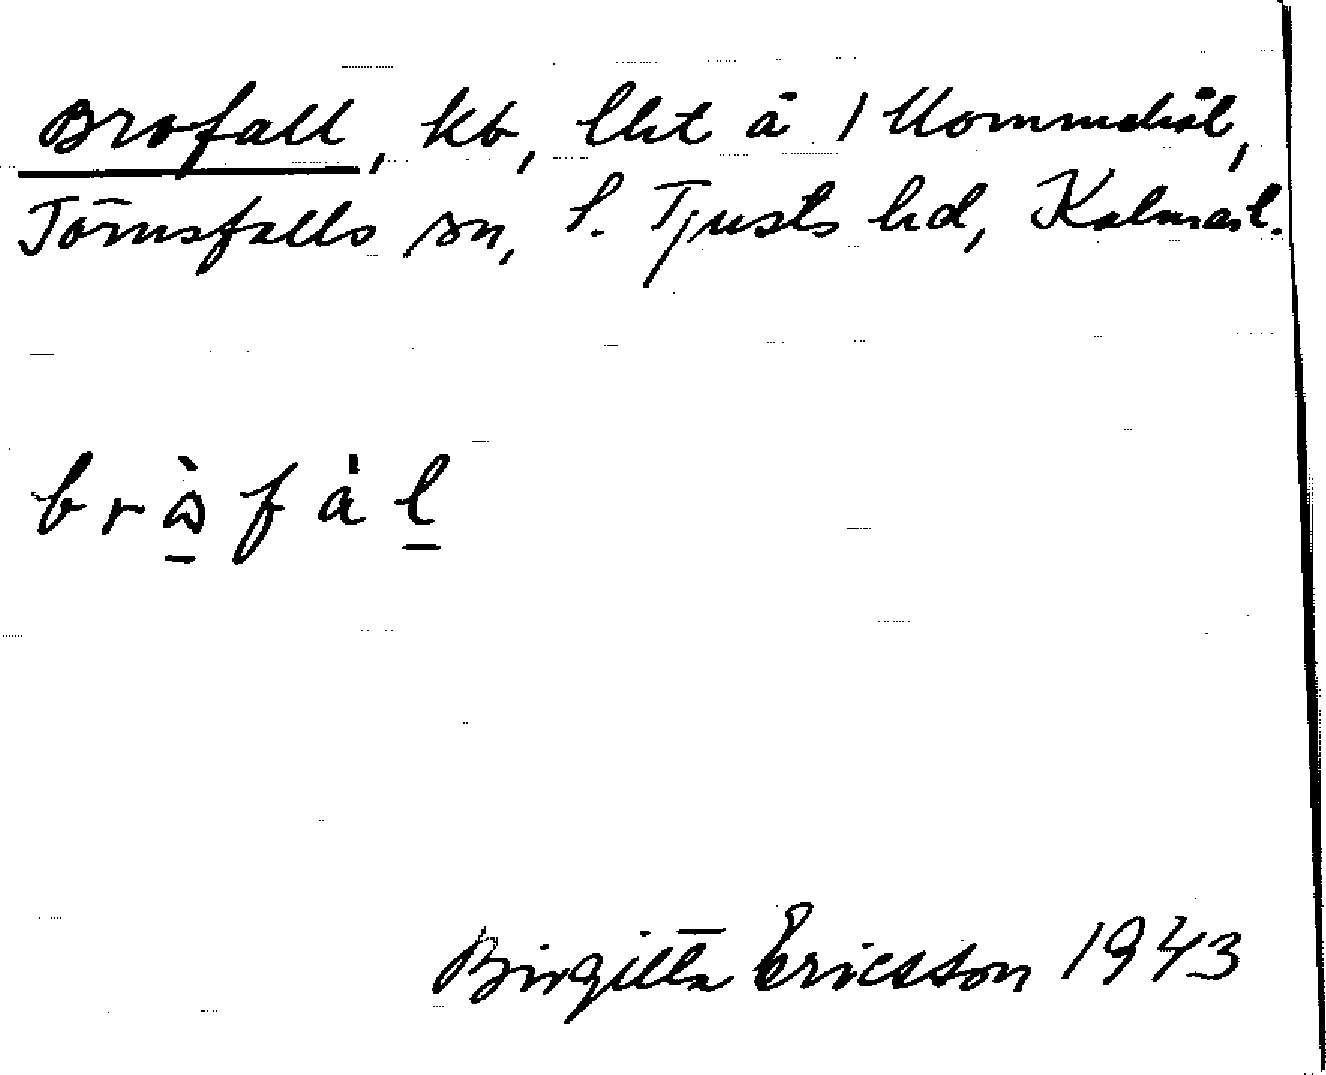 Brofall, kb, lht å 1 Mommehål,
Törnsfalls sn, S. Tjusts hd, Kalmar l.
bràfál
Birgitta Ericsson 1943